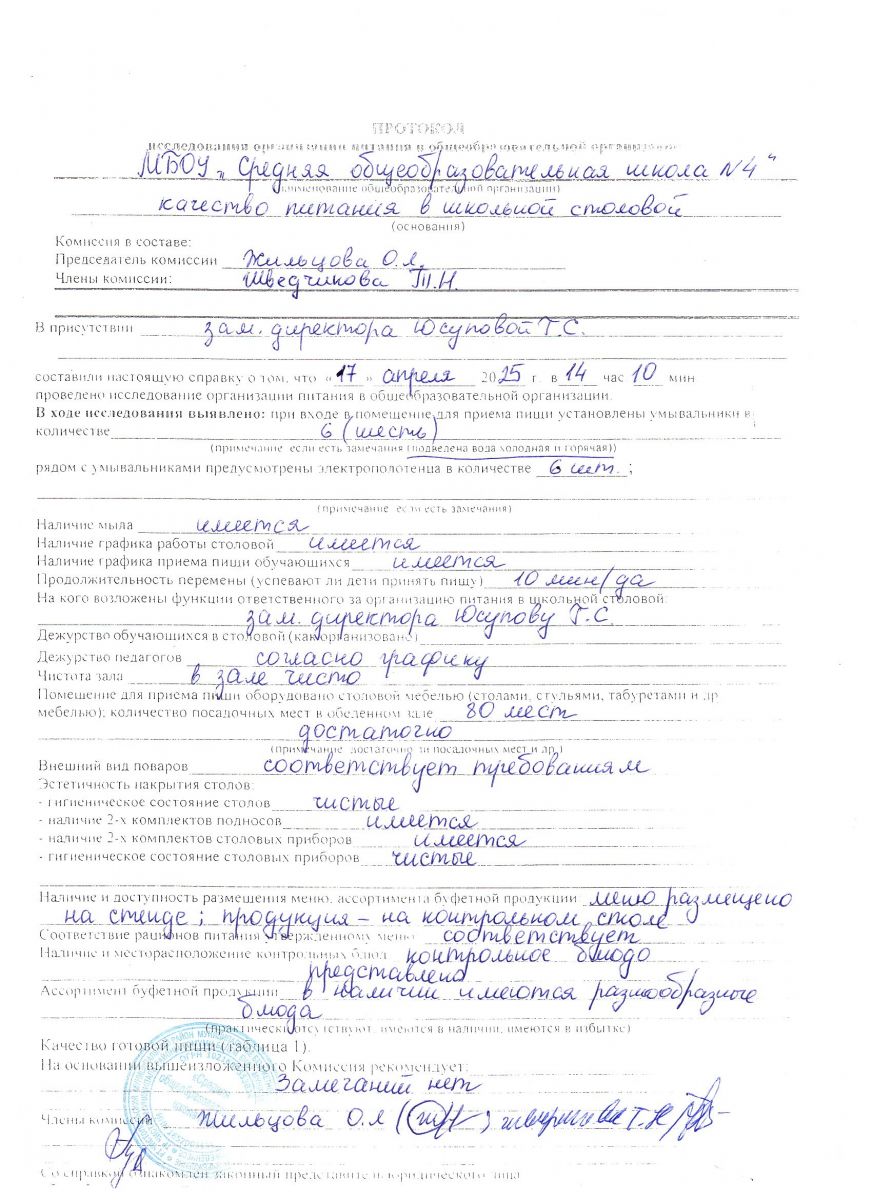 ПРОТОКОЛ
исследования организации питания в общеобразовательной организации
МБОУ „Средняя общеобразовательная школа №4"
(наименование общеобразовательной организации)
качество питания в школьной столовой
(основания)
Комиссия в составе:
Председатель комиссии Жильцова О.Я.
Члены комиссии: Шведчикова Т.Н.
В присутствии зам. директора Юсуповой Т.С.
составили настоящую справку о том, что «17» апреля 2025 г. в 14 час 10 мин
проведено исследование организации питания в общеобразовательной организации.
В ходе исследования выявлено: при входе в помещение для приема пищи установлены умывальники в
количестве 6 (шесть)
(примечание если есть замечания (подведена вода холодная и горячая))
рядом с умывальниками предусмотрены электрополотенца в количестве 6 шт. ;
(примечание если есть замечания)
Наличие мыла имеется
Наличие графика работы столовой имеется
Наличие графика приема пищи обучающихся имеется
Продолжительность перемены (успевают ли дети принять пищу) 10 мин/да
На кого возложены функции ответственного за организацию питания в школьной столовой:
зам. директора Юсупову Т.С
Дежурство обучающихся в столовой (как организовано)
Дежурство педагогов согласно графику
Чистота зала в зале чисто
Помещение для приема пищи оборудовано столовой мебелью (столами, стульями, табуретами и др
мебелью); количество посадочных мест в обеденном зале 80 мест
достаточно
(примечание достаточно ли посадочных мест и др.)
Внешний вид поваров соответствует требованиям
Эстетичность накрытия столов:
- гигиеническое состояние столов чистые
- наличие 2-х комплектов подносов имеется
- наличие 2-х комплектов столовых приборов имеется
- гигиеническое состояние столовых приборов чистые
Наличие и доступность размещения меню, ассортимента буфетной продукции меню размещено
на стенде; продукция – на контрольном столе
Соответствие рационов питания утвержденному меню соответствует
Наличие и месторасположение контрольных блюд контрольное блюдо
представлено
Ассортимент буфетной продукции в наличии имеются разнообразные
блюда
(практически отсутствуют, имеются в наличии, имеются в избытке)
Качество готовой пищи (таблица 1).
На основании вышеизложенного Комиссия рекомендует:
Замечаний нет
Члены комиссии Жильцова О.Я
Со справкой ознакомлен законный представитель юридического лица